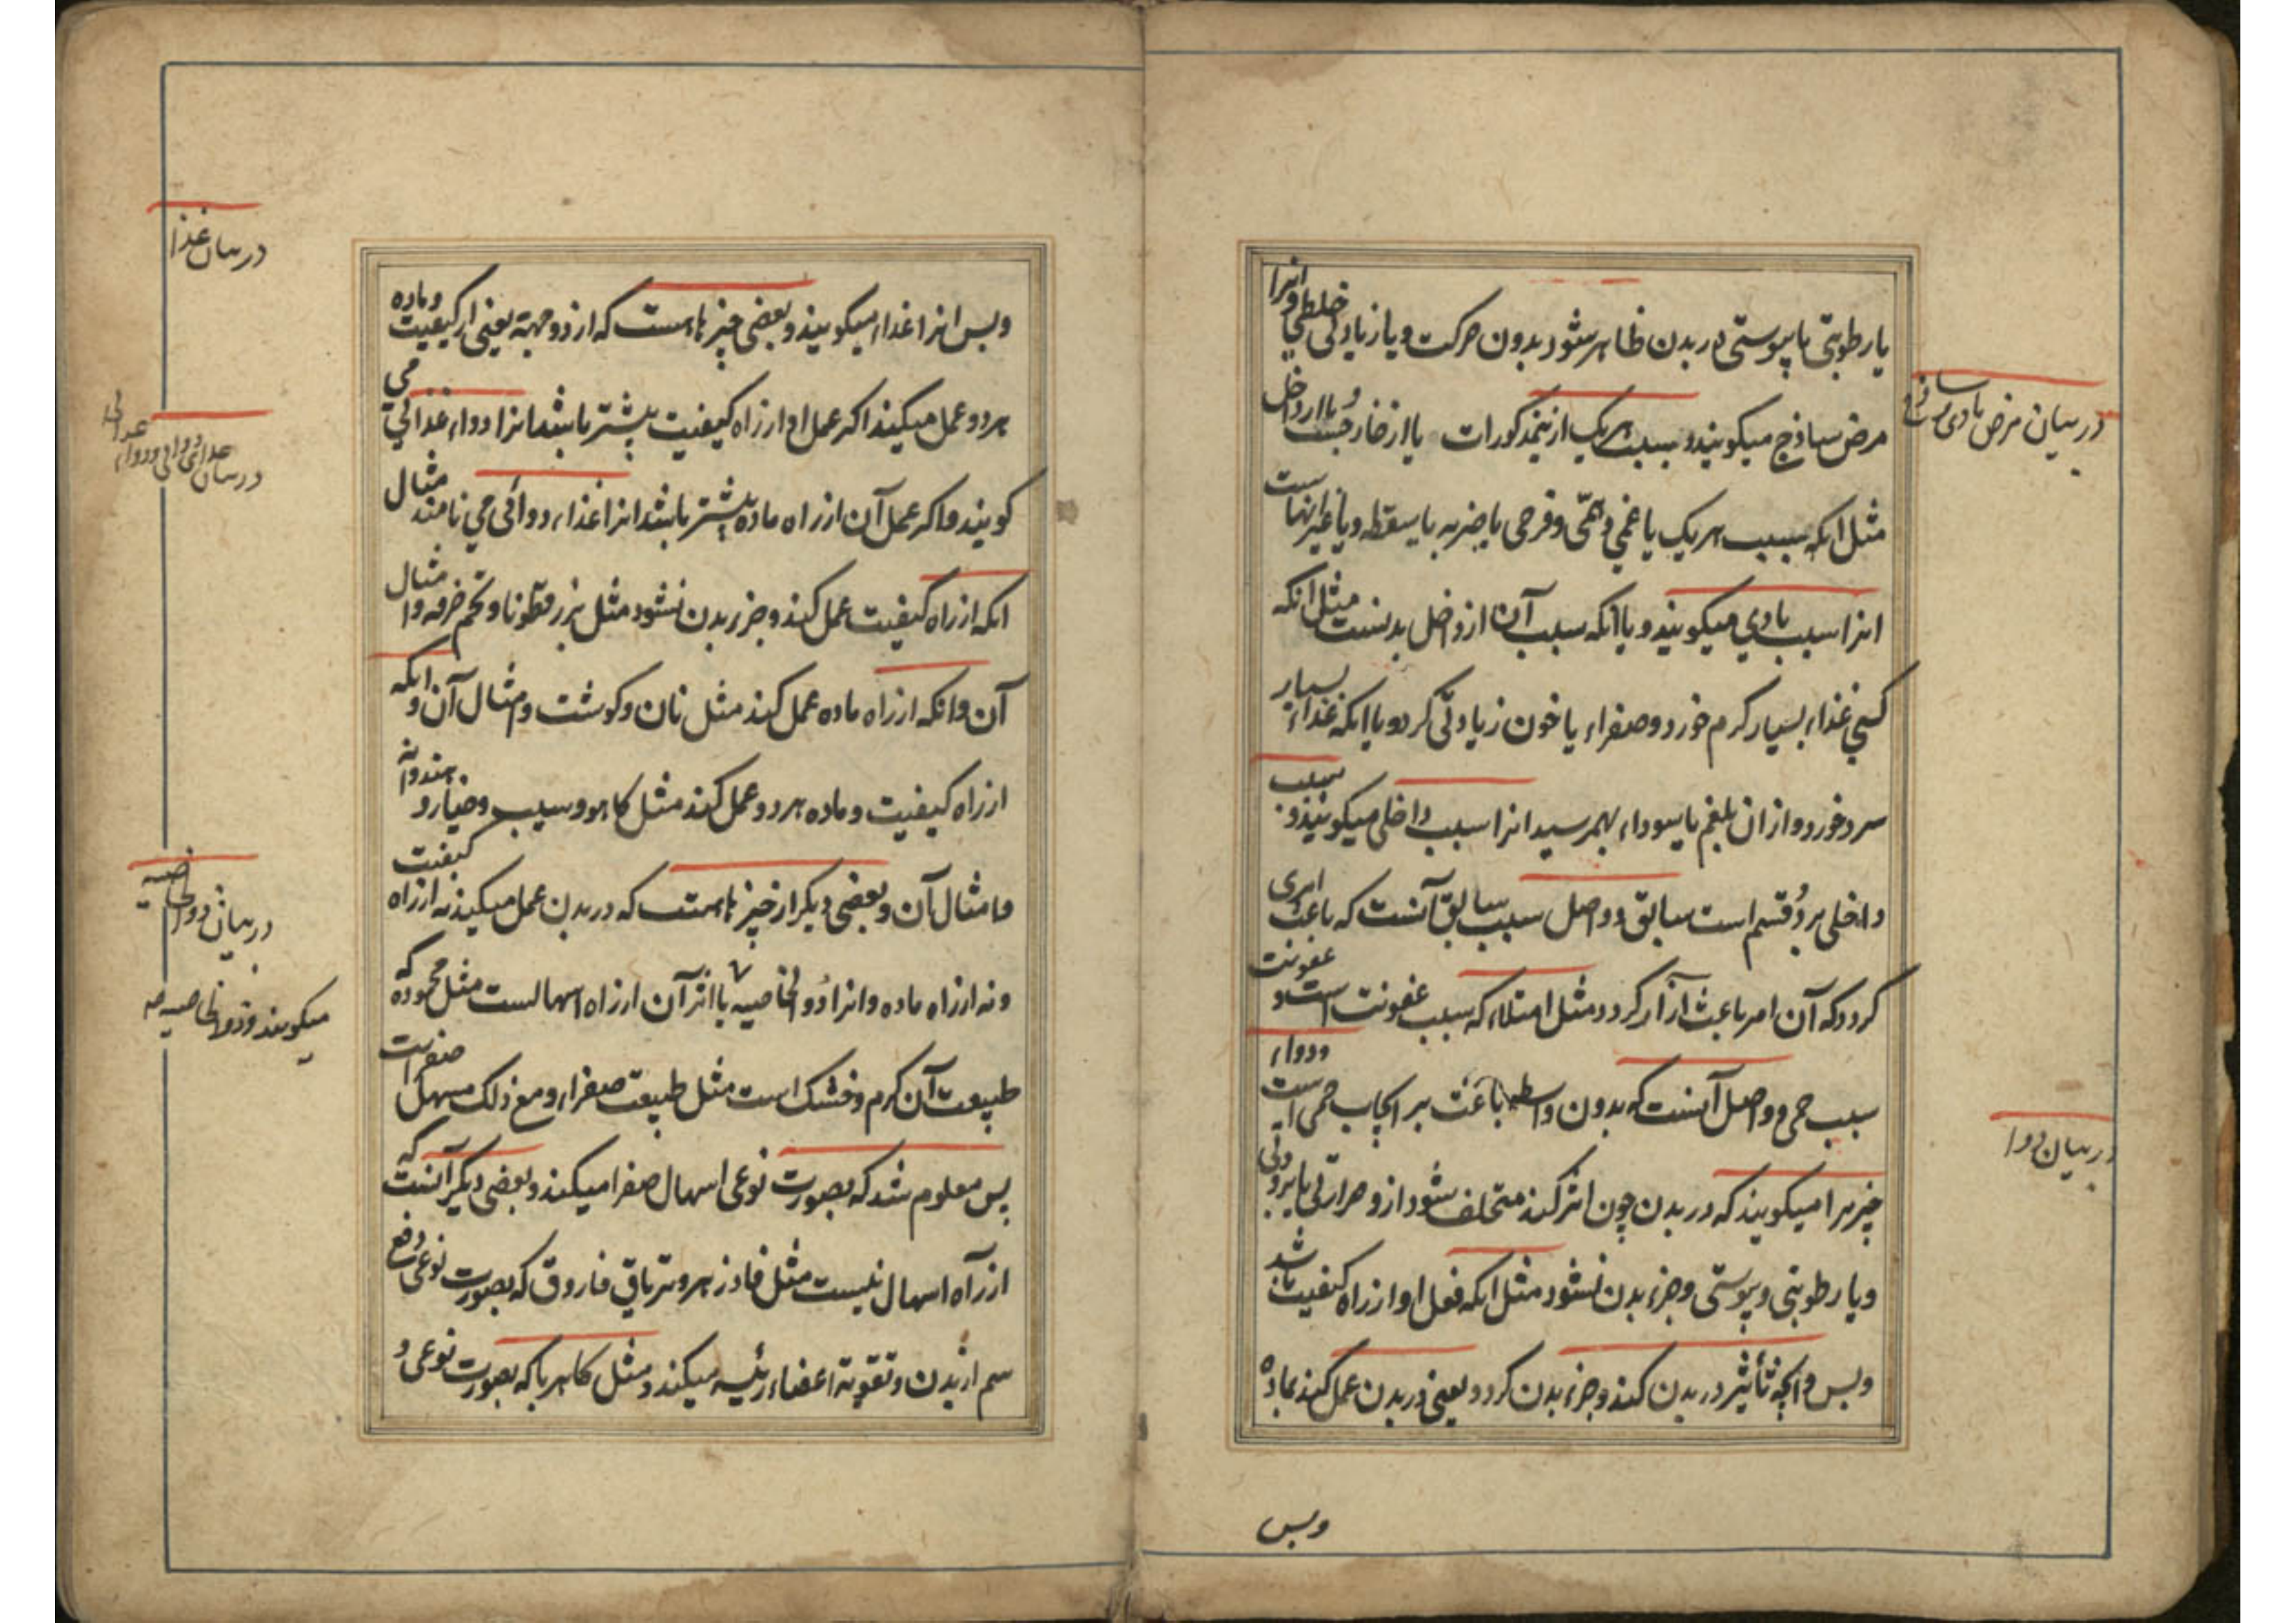 یا رطوبتی یا یبوستی در بدن ظاهر شود بدون حرکت و یا زیادتی خلطی و انرا
مرض ساذج میکویند و سبب هریک ازینمذکورات یا از خارجست و یا از داخل
مثل انکه سبب هریک یا غمی و همّی و فرحی یا ضربه یا سقطه و یا غیر اینهاست
انرا سبب بادی میکویند و یا انکه سبب آن از داخل بدنست مثل انکه
کسی غذاء بسیار کرم خورد و صفراء یا خون زیادتی کرد و یا انکه غذاء بسیار
سرد خورد و ازان بلغم یا سوداء بهمرسید انرا سبب داخلی میکویند و سبب
داخلی بر دو قسم است سابق و واصل سبب سابق آنست که باعث امری
کردد که آن امر باعث آزار کردد مثل امتلاء که سبب عفونت است و عفونت
سبب حمی و واصل آنست که بدون واسطه باعث بر ایجاب حمی است و دواء
چیزیرا میکویند که در بدن چون اثر کند متخلف شود ازو حرارتی یا برودتی
و یا رطوبتی و یبوستی و جزء بدن نشود مثل انکه فعل او از راه کیفیت باشد
و بس و انچه تأثیر در بدن کند و جزء بدن کردد یعنی در بدن عمل کند بماده
و بس
در بیان مرض
در بیان دوا
و بس انرا غذاء میکویند و بعضی چیزها هست که از دو جهة یعنی از کیفیت و ماده
هر دو عمل میکند اکر عمل او از راه کیفیت بیشتر باشد انرا دواء غذائی می
کویند و اکر عمل آن از راه ماده بیشتر باشد انرا غذاء دوائی می نامند مثال
انکه از راه کیفیت عمل کند و جزء بدن نشود مثل بزر قطونا و تخم خرفه و امثال
آن و انکه از راه ماده عمل کند مثل نان و کوشت و امثال آن و انکه
از راه کیفیت و ماده هر دو عمل کند مثل کاهو و سیب و خیار و هندوانه
و امثال آن و بعضی دیکر از چیزها هست که در بدن عمل میکند نه از راه کیفیت
و نه از راه ماده و انرا ذو الخاصیه یا اثر آن از راه اسهالست مثل محموده که
طبیعت آن کرم و خشک است مثل طبیعت صفراء و مع ذلک مسهل صفراست
پس معلوم شد که بصورت نوعی اسهال صفرا میکند و بعضی دیکر آنست که
از راه اسهال نیست مثل فادزهر و تریاق فاروق که بصورت نوعی دفع
سم از بدن و تقویة اعضاء رئیسه میکند و مثل کاهربا که بصورت نوعی و
در بیان غذا
در بیان ذو الخاصیه
میکویند و ذو الخاصیه